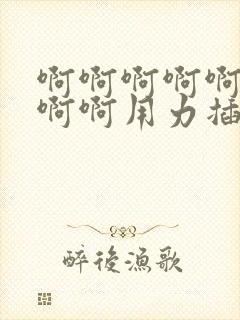 啊啊啊啊啊
啊啊用力插
醉後漁歌